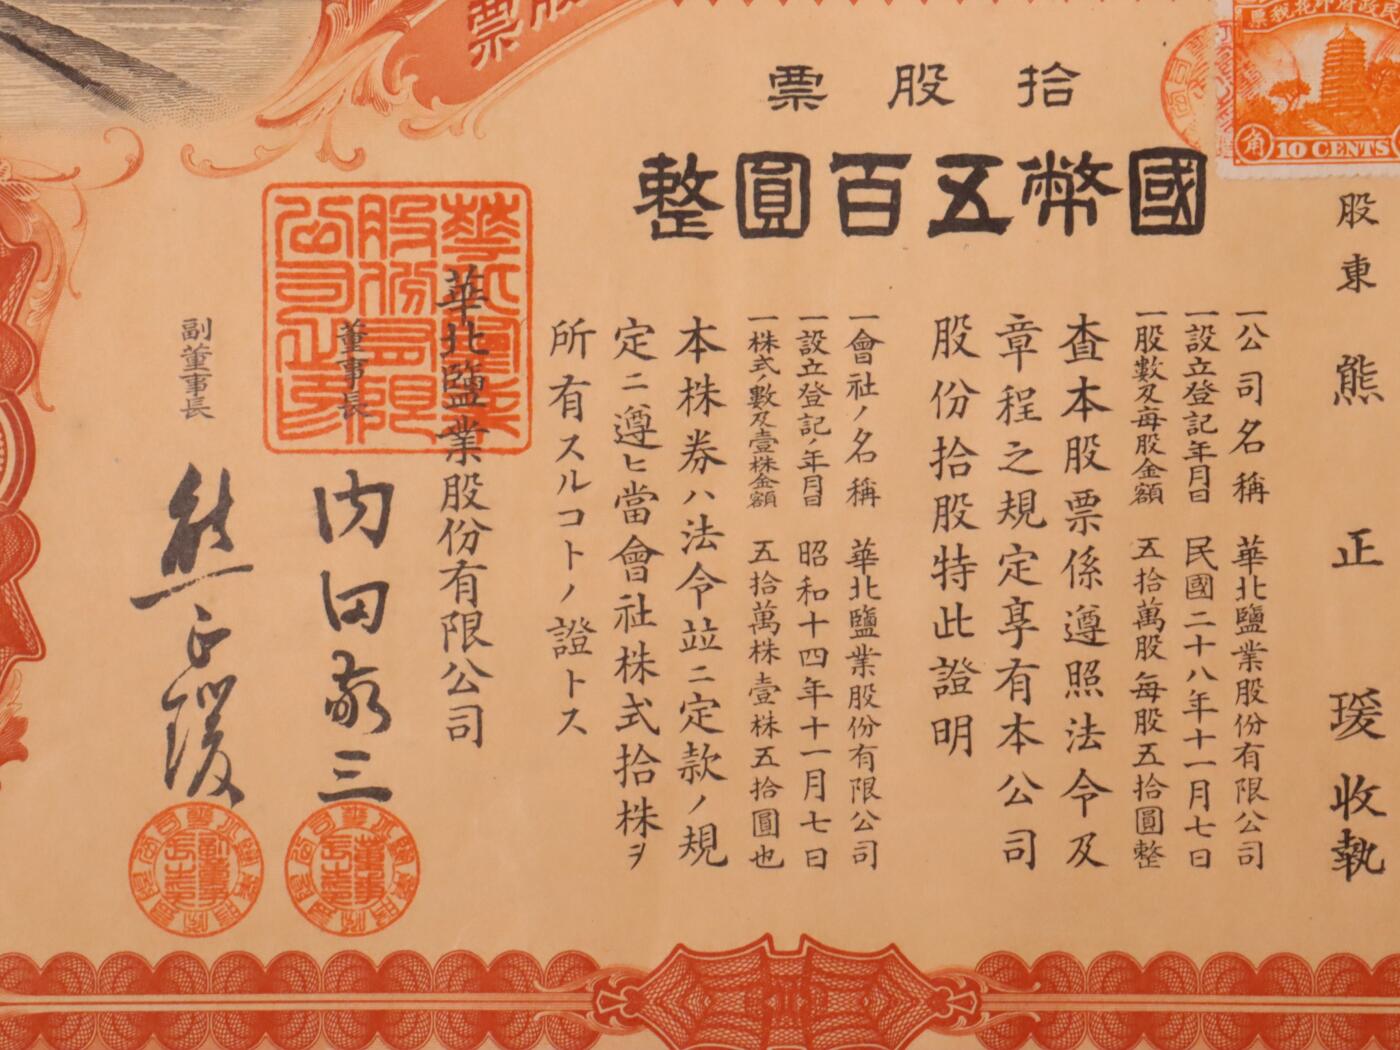 股票
拾股票
國幣五百圓整
民政府印花稅票
角
10 CENTS
股東 熊正瑗收執
一公司名稱 華北鹽業股份有限公司
一設立登記年月日 民國二十八年十一月七日
一股數及每股金額 五拾萬股每股五拾圓整
查本股票係遵照法令及
章程之規定享有本公司
股份拾股特此證明
一會社ノ名稱 華北鹽業股份有限公司
一設立登記ノ年月日 昭和十四年十一月七日
一株式ノ數及壹株金額 五拾萬株壹株五拾圓也
本株券ハ法令竝ニ定款ノ規
定ニ遵ヒ當會社株式拾株ヲ
所有スルコトノ證トス
華北鹽業股份有限公司
董事長 內田敬三
副董事長 熊正瑗